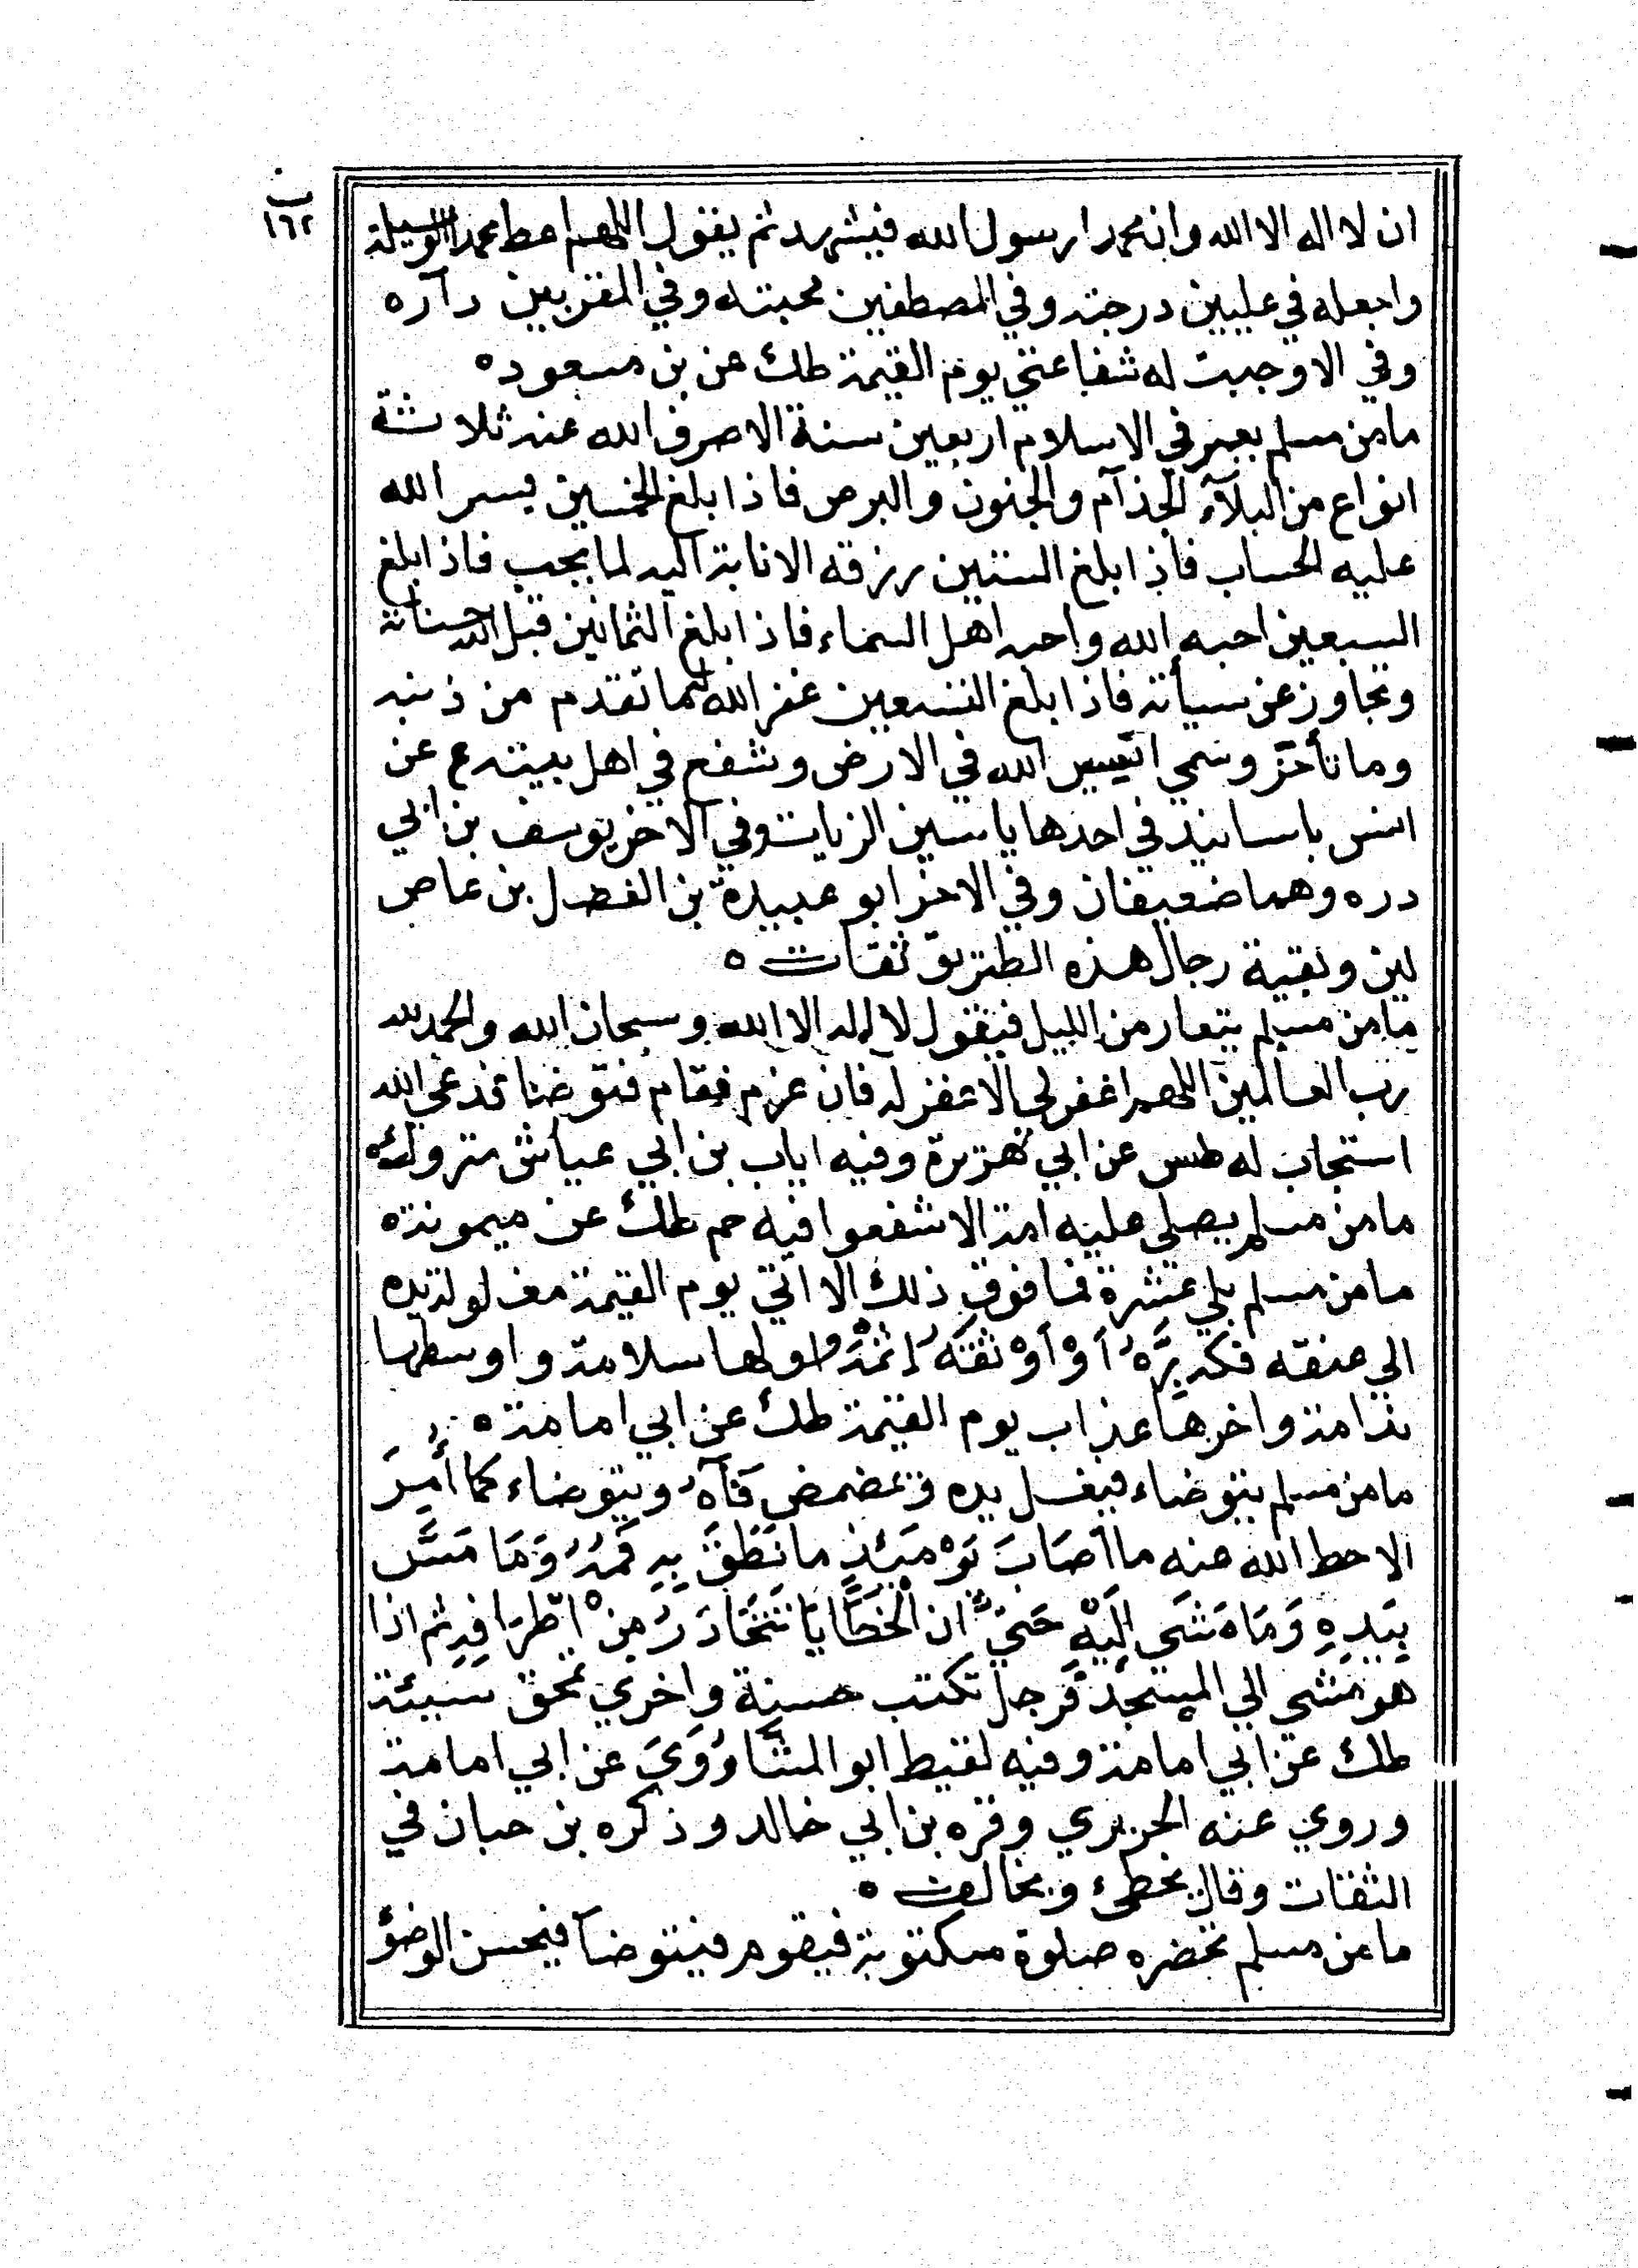 ب
١٦٢
ان لا اله الا الله وان محمدا رسول الله فيشهد ثم يقول اللهم اعط محمدا الوسيلة
واجعله في عليين درجته وفي المصطفين محبته وفي المقربين داره
وفي الا وجبت له شفاعتي يوم القيمة طك عن بن مسعود ه
مامن مسلم يعمر في الاسلام اربعين سنة الا صرف الله عنه ثلاثة
انواع من البلآء الجذآم والجنون والبرص فاذا بلغ الخمسين يسر الله
عليه الحساب فاذا بلغ الستين رزقه الانابة اليه لما يحب فاذا بلغ
السبعين احبه الله واحبه اهل السماء فاذا بلغ الثمانين قبل الله حسناته
وتجاوز عن سيأته فاذا بلغ التسعين غفر الله له ما تقدم من ذنبه
وما تأخر وسمي اسير الله في الارض وشفع في اهل بيته ع عن
انس باسانيد في احدها ياسين الزيات وفي الاخر يوسف بن ابي
دره وهما ضعيفان وفي الاخر ابو عبيدة بن الفضل بن عاص
لين وبقية رجال هذه الطريق ثقات ه
مامن مسلم يتعار من الليل فيقول لا اله الا الله وسبحان الله والحمد لله
رب العالمين اللهم اغفر لي الا غفر له فان عزم فقام فتوضا فدعي الله
استجاب له طس عن ابي هريرة وفيه اياب بن ابي عياش متروك ه
مامن مسلم يصلي عليه امة الا شفعوا فيه حم طك عن ميمونة ه
مامن مسلم يلي عشرة فما فوق ذلك الا اتي يوم القيمة مغلولة يده
الي عنقه فكه برَّهُ أوْ أوْثَقَهُ اِثمُهُ اولها سلامة واوسطها
ندامة واخرها عذاب يوم القيمة طك عن ابي امامة ه
مامن مسلم يتوضاء فيغسل يده وتمضمض فآه ويتوضاء كما أُمِرَ
الا حط الله عنه ما اَصَابَ يَوْمَئِذٍ ما نَطَقَ بِهِ فَمُهُ وَمَا مَسَّ
بِيَدِهِ وَمَا مَشَي اِلَيْهِ حَتيَّ ان الخَطَايَا تَتَحَادَرُ مِنْ اطْرَافِهِ ثم اذا
هو مشي الي المسجد فرجل تكتب حسنة واخري تمحق سيئة
طك عن ابي امامة وفيه لقيط ابو المشا رَوَيَ عن ابي امامة
وروي عنه الجريري وقره بن ابي خالد وذكره بن حبان في
الثقات وقال يخطئ ويخالف ه
مامن مسلم تحضره صلوة مكتوبة فيقوم فيتوضا فيحسن الوضؤ